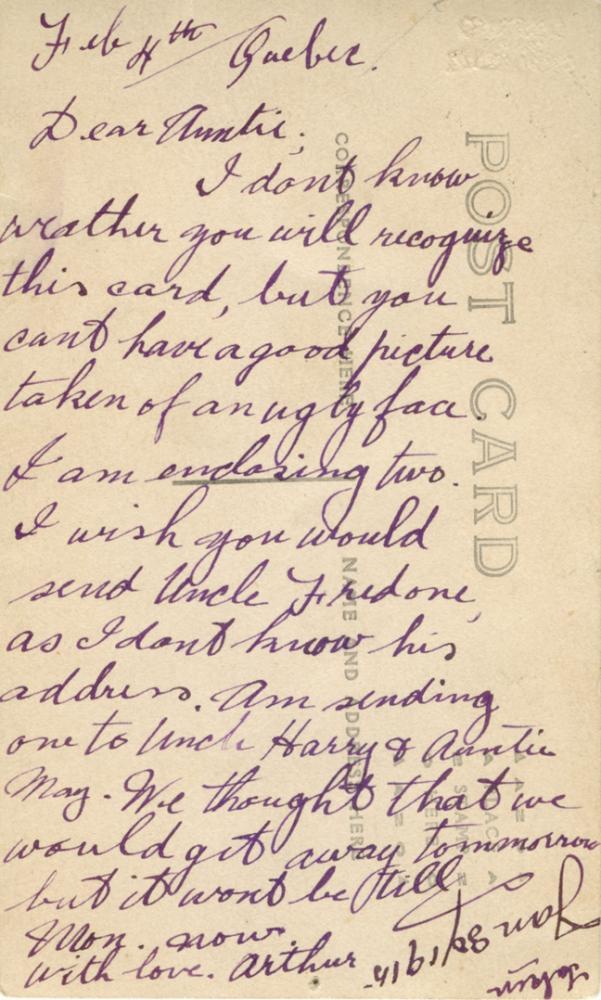 Feb 4th Quebec.
Dear Auntie;
I dont know
weather you will recognize
this card, but you
cant have a good picture
taken of an ugly face.
I am enclosing two.
I wish you would
send Uncle Fred one,
as I dont know his
address. Am sending
one to Uncle Harry & Auntie
May. We thought that we
would get away tommorrow
but it wont be till
Mon. now.
with love. Arthur
POST CARD
CORRESPONDENCE HERE
NAME AND ADDRESS HERE
PLACE
STAMP
HERE